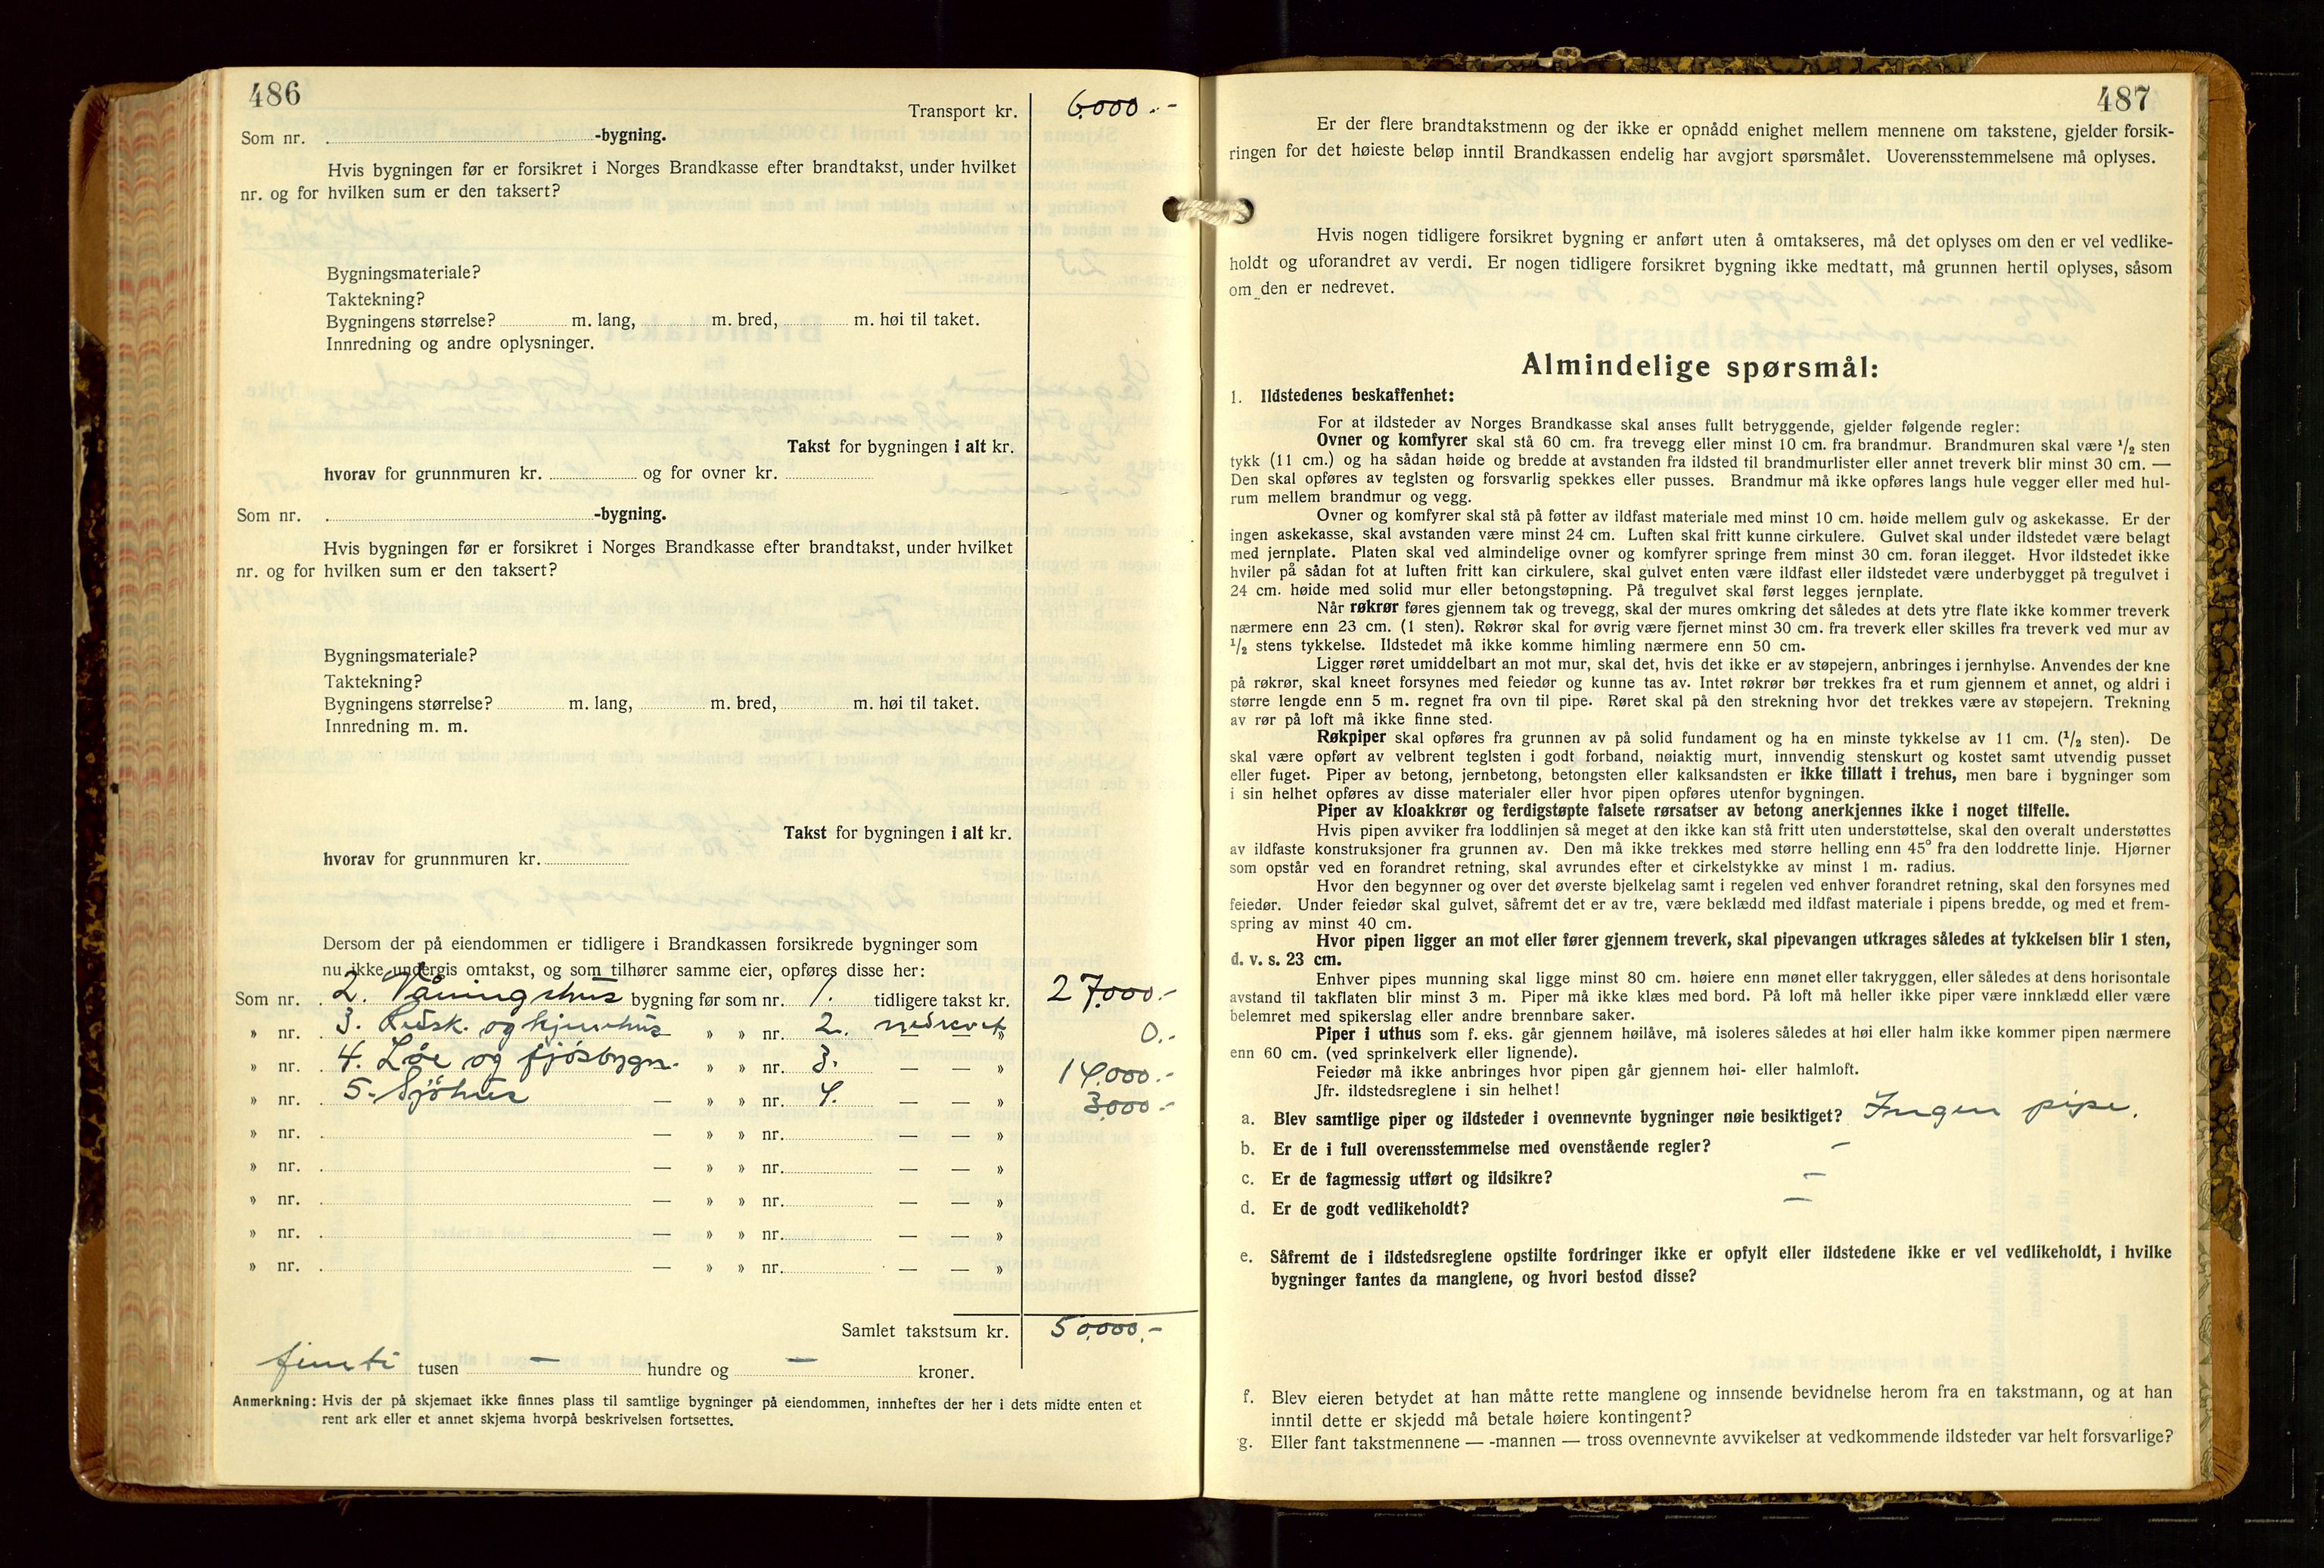 486
Transport kr. 6.000.-
Som nr. -bygning.
Hvis bygningen før er forsikret i Norges Brandkasse efter brandtakst, under hvilket
nr. og for hvilken sum er den taksert?
Bygningsmateriale?
Taktekning?
Bygningens størrelse? m. lang, m. bred, m. høi til taket.
Innredning og andre oplysninger.
Takst for bygningen i alt kr.
hvorav for grunnmuren kr. og for ovner kr.
Som nr. -bygning.
Hvis bygningen før er forsikret i Norges Brandkasse efter brandtakst, under hvilket
nr. og for hvilken sum er den taksert?
Bygningsmateriale?
Taktekning?
Bygningens størrelse? m. lang, m. bred, m. høi til taket.
Innredning m. m.
Takst for bygningen i alt kr.
hvorav for grunnmuren kr.
Dersom der på eiendommen er tidligere i Brandkassen forsikrede bygninger som
nu ikke undergis omtakst, og som tilhører samme eier, opføres disse her:
Som nr. 2. Våningshus bygning før som nr. 1. tidligere takst kr. 27.000.-
» nr. 3. Redsk. og hjuvhus » » nr. 2. nedrevet » 0.-
» nr. 4. Løe og fjøsbygn. » » nr. 3. — — » 14.000.-
» nr. 5. Sjøhus — » » nr. 4. — — » 3.000.-
» nr. — » » nr. — — »
» nr. — » » nr. — — »
» nr. — » » nr. — — »
» nr. — » » nr. — — »
» nr. — » » nr. — — »
Samlet takstsum kr. 50.000,-
femti tusen — hundre og — kroner.
Anmerkning: Hvis der på skjemaet ikke finnes plass til samtlige bygninger på eiendommen, innheftes der her i dets midte enten et
rent ark eller et annet skjema hvorpå beskrivelsen fortsettes.
487
Er der flere brandtakstmenn og der ikke er opnådd enighet mellem mennene om takstene, gjelder forsik-
ringen for det høieste beløp inntil Brandkassen endelig har avgjort spørsmålet. Uoverensstemmelsene må oplyses.
Hvis nogen tidligere forsikret bygning er anført uten å omtakseres, må det oplyses om den er vel vedlike-
holdt og uforandret av verdi. Er nogen tidligere forsikret bygning ikke medtatt, må grunnen hertil oplyses, såsom
om den er nedrevet.
Almindelige spørsmål:
1. Ildstedenes beskaffenhet:
For at ildsteder av Norges Brandkasse skal anses fullt betryggende, gjelder følgende regler:
Ovner og komfyrer skal stå 60 cm. fra trevegg eller minst 10 cm. fra brandmur. Brandmuren skal være ½ sten
tykk (11 cm.) og ha sådan høide og bredde at avstanden fra ildsted til brandmurlister eller annet treverk blir minst 30 cm. —
Den skal opføres av teglsten og forsvarlig spekkes eller pusses. Brandmur må ikke opføres langs hule vegger eller med hul-
rum mellem brandmur og vegg.
Ovner og komfyrer skal stå på føtter av ildfast materiale med minst 10 cm. høide mellem gulv og askekasse. Er der
ingen askekasse, skal avstanden være minst 24 cm. Luften skal fritt kunne cirkulere. Gulvet skal under ildstedet være belagt
med jernplate. Platen skal ved almindelige ovner og komfyrer springe frem minst 30 cm. foran ilegget. Hvor ildstedet ikke
hviler på sådan fot at luften fritt kan cirkulere, skal gulvet enten være ildfast eller ildstedet være underbygget på tregulvet i
24 cm. høide med solid mur eller betongstøpning. På tregulvet skal først legges jernplate.
Når røkrør føres gjennem tak og trevegg, skal der mures omkring det således at dets ytre flate ikke kommer treverk
nærmere enn 23 cm. (1 sten). Røkrør skal for øvrig være fjernet minst 30 cm. fra treverk eller skilles fra treverk ved mur av
½ stens tykkelse. Ildstedet må ikke komme himling nærmere enn 50 cm.
Ligger røret umiddelbart an mot mur, skal det, hvis det ikke er av støpejern, anbringes i jernhylse. Anvendes der kne
på røkrør, skal kneet forsynes med feiedør og kunne tas av. Intet røkrør bør trekkes fra et rum gjennem et annet, og aldri i
større lengde enn 5 m. regnet fra ovn til pipe. Røret skal på den strekning hvor det trekkes være av støpejern. Trekning
av rør på loft må ikke finne sted.
Røkpiper skal opføres fra grunnen av på solid fundament og ha en minste tykkelse av 11 cm. (½ sten). De
skal være opført av velbrent teglsten i godt forband, nøiaktig murt, innvendig stenskurt og kostet samt utvendig pusset
eller fuget. Piper av betong, jernbetong, betongsten eller kalksandsten er ikke tillatt i trehus, men bare i bygninger som
i sin helhet opføres av disse materialer eller hvor pipen opføres utenfor bygningen.
Piper av kloakkrør og ferdigstøpte falsete rørsatser av betong anerkjennes ikke i noget tilfelle.
Hvis pipen avviker fra loddlinjen så meget at den ikke kan stå fritt uten understøttelse, skal den overalt understøttes
av ildfaste konstruksjoner fra grunnen av. Den må ikke trekkes med større helling enn 45° fra den loddrette linje. Hjørner
som opstår ved en forandret retning, skal avrundes efter et cirkelstykke av minst 1 m. radius.
Hvor den begynner og over det øverste bjelkelag samt i regelen ved enhver forandret retning, skal den forsynes med
feiedør. Under feiedør skal gulvet, såfremt det er av tre, være beklædd med ildfast materiale i pipens bredde, og med et frem-
spring av minst 40 cm.
Hvor pipen ligger an mot eller fører gjennem treverk, skal pipevangen utkrages således at tykkelsen blir 1 sten,
d. v. s. 23 cm.
Enhver pipes munning skal ligge minst 80 cm. høiere enn mønet eller takryggen, eller således at dens horisontale
avstand til takflaten blir minst 3 m. Piper må ikke klæs med bord. På loft må heller ikke piper være innklædd eller være
belemret med spikerslag eller andre brennbare saker.
Piper i uthus som f. eks. går gjennem høilåve, må isoleres således at høi eller halm ikke kommer pipen nærmere
enn 60 cm. (ved sprinkelverk eller lignende).
Feiedør må ikke anbringes hvor pipen går gjennem høi- eller halmloft.
Jfr. ildstedsreglene i sin helhet!
a. Blev samtlige piper og ildsteder i ovennevnte bygninger nøie besiktiget? Ingen pipe.
b. Er de i full overensstemmelse med ovenstående regler? —
c. Er de fagmessig utført og ildsikre? —
d. Er de godt vedlikeholdt? —
e. Såfremt de i ildstedsreglene opstilte fordringer ikke er opfylt eller ildstedene ikke er vel vedlikeholdt, i hvilke
bygninger fantes da manglene, og hvori bestod disse?
f. Blev eieren betydet at han måtte rette manglene og innsende bevidnelse herom fra en takstmann, og at han
inntil dette er skjedd må betale høiere kontingent?
g. Eller fant takstmennene — -mannen — tross ovennevnte avvikelser at vedkommende ildsteder var helt forsvarlige?